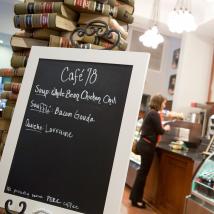 Café '78
Soup: White Bean Chicken Chili
Soufflé: Bacon Gouda
Quiche: Lorraine
We proudly serve PEKE coffee